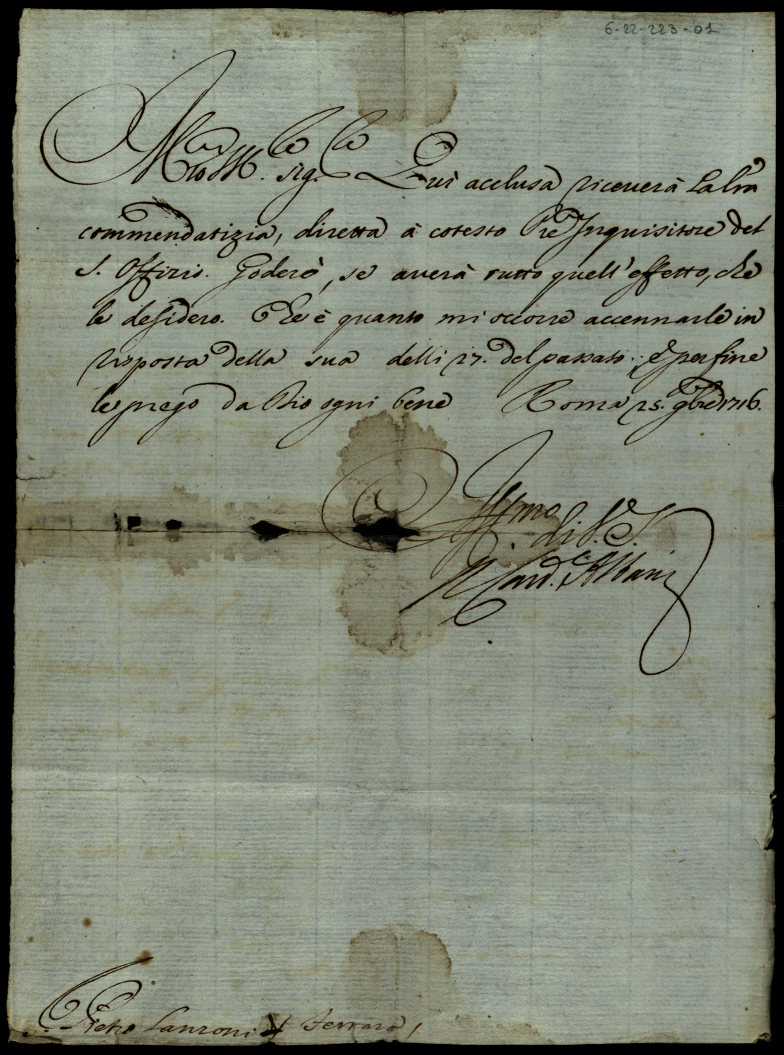 6-22-223-01
Mio M. sig.re Qui acclusa riceverà la lra
commendatizia, diretta à cotesto Pre Inquisitore del
S. Offizio. Goderò, se averà tutto quell'effetto, che
le desidero. Che è quanto mi occorre accennarle in
risposta della sua delli 17. del passato; e per fine
le prego da Dio ogni bene Roma 25. 9bre 1716.
di V.S.
Card. Albani
Pietro Lanzoni Ferrara